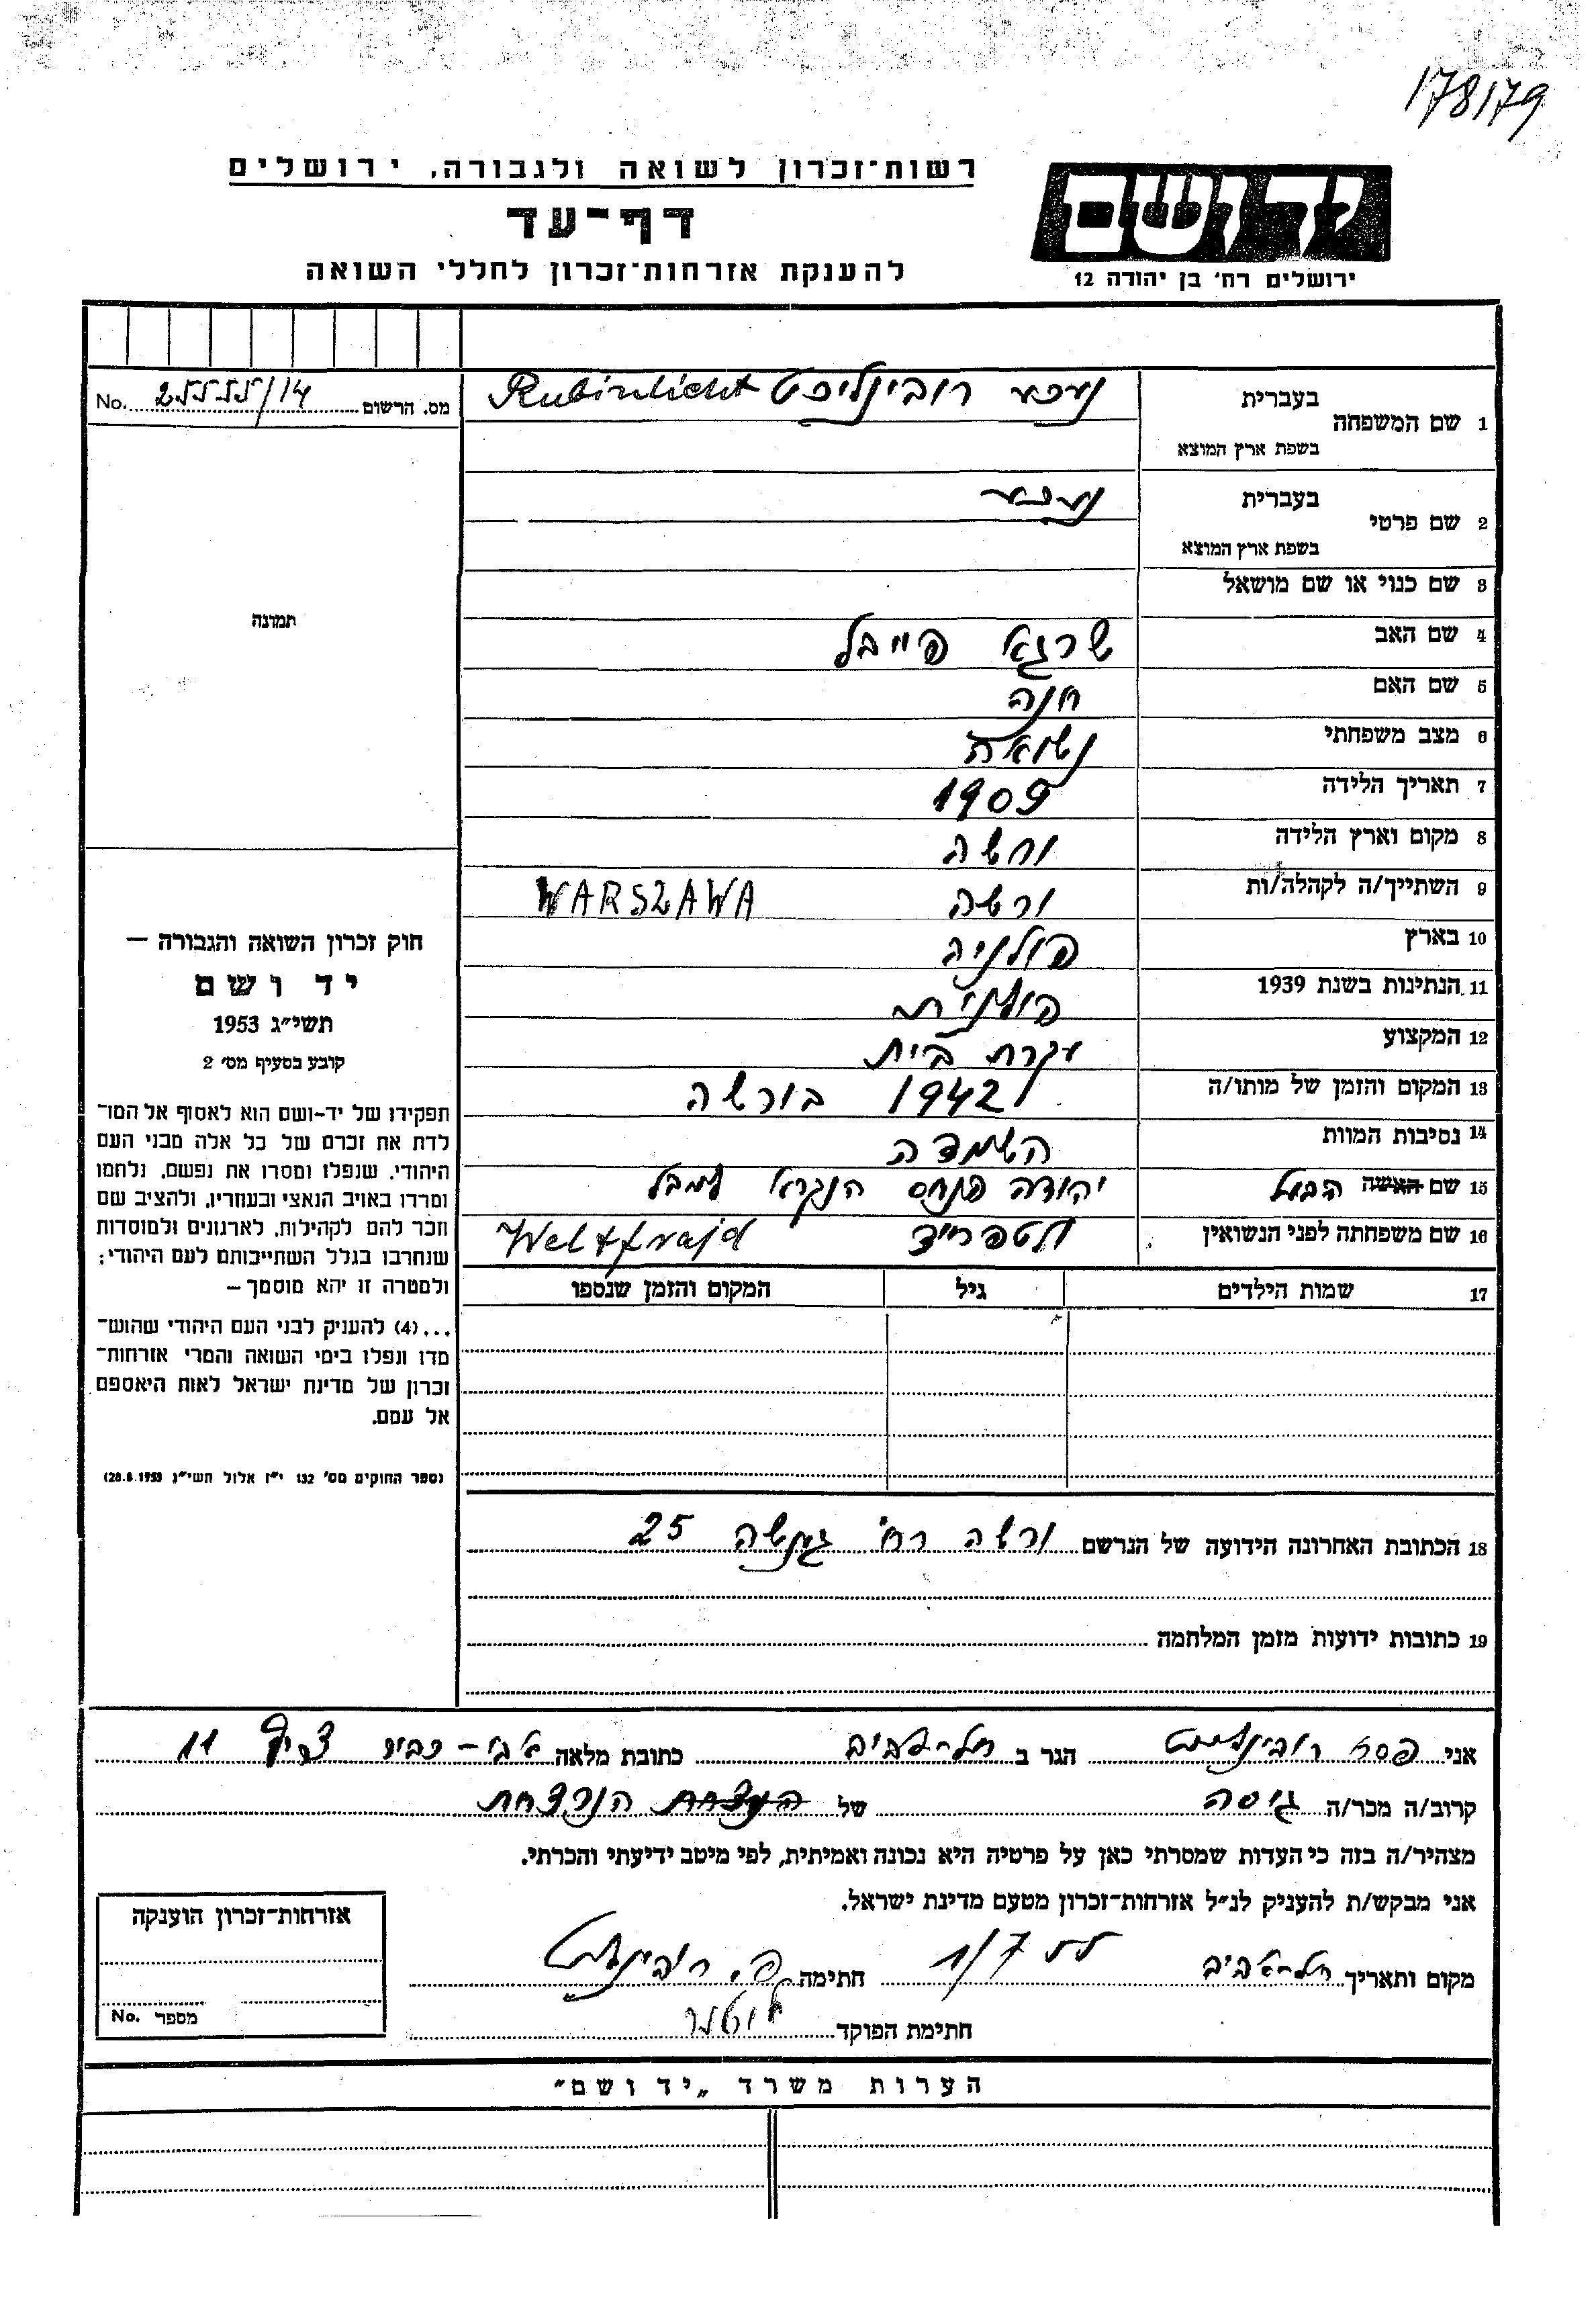 178179
רשות־זכרון לשואה ולגבורה, ירושלים
דף-עד
להענקת אזרחות־זכרון לחללי השואה
ידושם
ירושלים רח׳ בן יהודה 12
מס. הרשום 25555/14 No.
תמונה
חוק זכרון השואה והגבורה —
יד ושם
תשי״ג 1953
קובע בסעיף מס׳ 2
תפקידו של יד-ושם הוא לאסוף אל המו־
לדת את זכרם של כל אלה מבני העם
היהודי, שנפלו ומסרו את נפשם, נלחמו
ומרדו באויב הנאצי ובעוזריו, ולהציב שם
וזכר להם לקהילות, לארגונים ולמוסדות
שנחרבו בגלל השתייכותם לעם היהודי;
ולמטרה זו יהא מוסמך —
...(4) להעניק לבני העם היהודי שהוש־
מדו ונפלו בימי השואה והמרי אזרחות־
זכרון של מדינת ישראל לאות היאספם
אל עמם.
(ספר החוקים מס׳ 132 י״ז אלול תשי״ג 28.8.1953)
1 שם המשפחה בעברית רובינליכט Rubinlicht
בשפת ארץ המוצא
2 שם פרטי בעברית
בשפת ארץ המוצא
3 שם כנוי או שם מושאל
4 שם האב שרגא פייבל
5 שם האם חנה
6 מצב משפחתי נשואה
7 תאריך הלידה 1909
8 מקום וארץ הלידה ורשה
9 השתייך/ה לקהלה/ות ורשה WARSZAWA
10 בארץ פולניה
11 הנתינות בשנת 1939 פולנית
12 המקצוע עקרת בית
13 המקום והזמן של מותו/ה 1942 בורשה
14 נסיבות המוות השמדה
15 שם האשה הבעל יהודה פנחס הנקרא
16 שם משפחתה לפני הנשואין ולטפרייד Weltfrajd
17 שמות הילדים גיל המקום והזמן שנספו
18 הכתובת האחרונה הידועה של הנרשם ורשה רח׳ גנשה 25
19 כתובות ידועות מזמן המלחמה
אני פסח רובינליכט הגר ב תל-אביב כתובת מלאה אבו-כביר צריף 11
קרוב/ה מכר/ה גיסה של הנרצחת
מצהיר/ה בזה כי העדות שמסרתי כאן על פרטיה היא נכונה ואמיתית, לפי מיטב ידיעתי והכרתי.
אני מבקש/ת להעניק לנ״ל אזרחות־זכרון מטעם מדינת ישראל.
מקום ותאריך תל-אביב 1/7 55 חתימה פ. רובינליכט
חתימת הפוקד
אזרחות־זכרון הוענקה
מספר No.
הערות משרד „יד ושם״